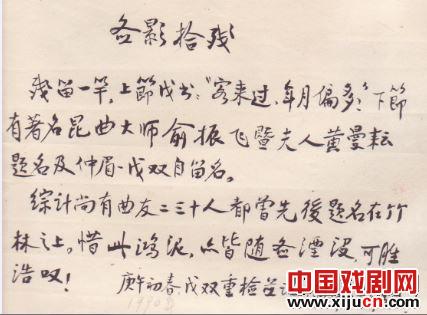 各影拾残
残留一竿，上節戊书：“客来过，年月偏多”下節
有著名昆曲大师俞振飞暨夫人黄曼耘
题名及仲眉、戊双自留名。
綜计尚有曲友二三十人都曾先後题名在竹
林之上。惜此鸿泥，亦皆随各湮没，可胜
浩叹！
庚午初春，戊双重检
1990
中国戏剧网
www.xijucn.com